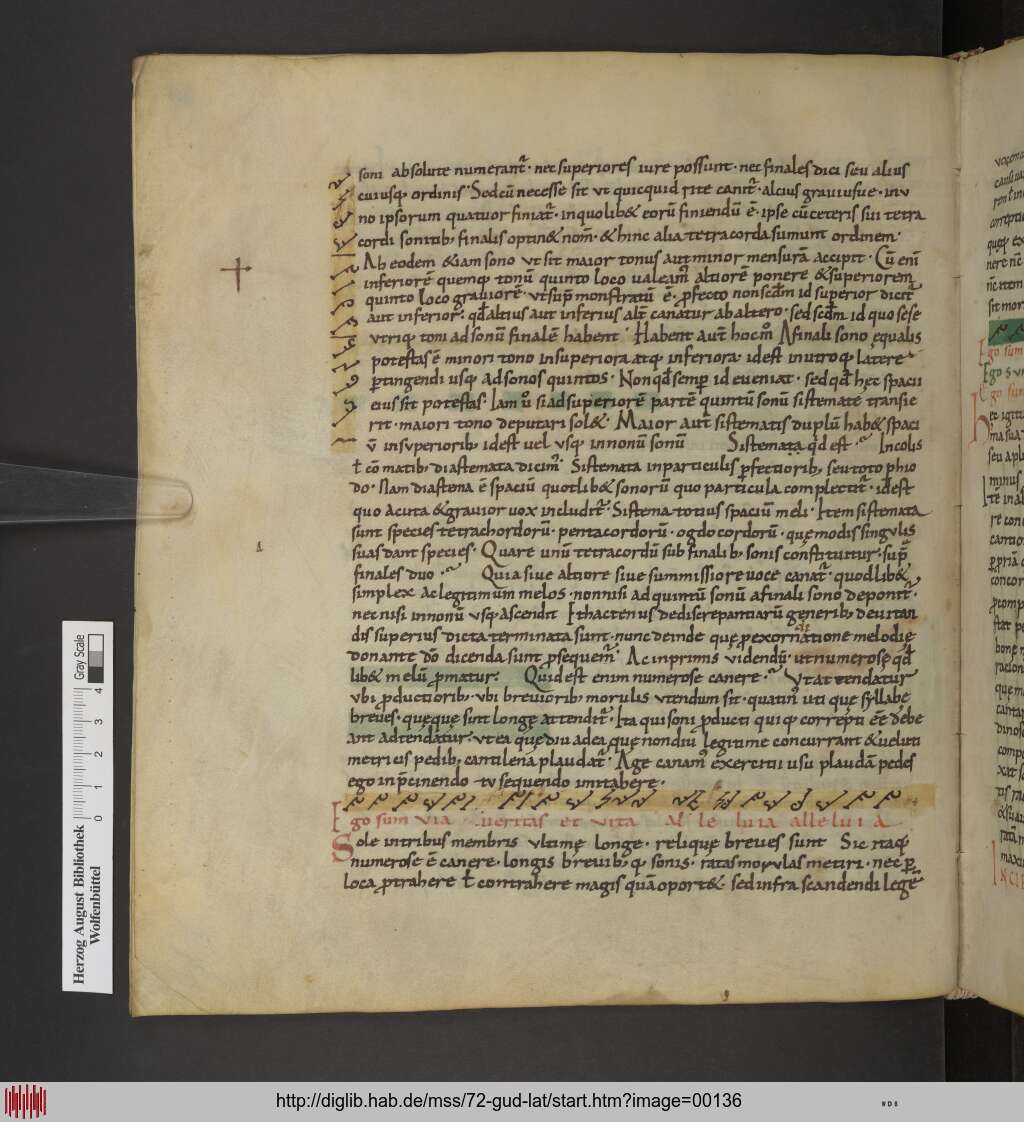 soni absolute numerant᷑ · nec superiores iure possunt · nec finales dici seu alius
cuiusq; ordinis · Sed cū necesse sit ut quicquid rite canit᷑ · alcius grauiusue · in u
no ipsorum quatuor finiat᷑ · in quolib& eorū finiendū ē · ipse cū ceteris sui tetra
cordi sonitib; finalis optin& nom̄ · & hinc alia tetracorda sumunt ordinem ·
Ab eodem &iam sono ut sit maior tonus aut minor mensurā accipit · Cū eni
inferiorē quemq; tonū quinto loco ualeam᷒ altiorē ponere & superiorem
quinto loco grauiorē · ut sup̄ monstratū ē · p̄fecto non scd̄m id superior dicit᷑
aut inferior · qd̄ altius aut inferius alt̄ canatur ab altero · sed scd̄m id quo sese
utriq; toni ad sonū finalē habent · Habent aut̄ hoc m̊ A finali sono ęqualis
potestas ē minori tono in superiora atq; inferiora · id est in utroq; latere
p̄tingendi usq; ad sonos quintos · Non qd̄ semp̄ id eueniat · sed qd̄ hęc spacii
eius sit potestas · Iam ů si ad superiorē partē quintū sonū sistemate transie
rit · maiori tono deputari sol& · Maior aut̄ sistematis duplū hab& spaci
ū in superiorib; id est uel usq; in nonū sonū Sistemata qd̄ est · In colis
ł cōmatib; diastemata dicim᷒ · Sistemata in particulis p̄fectiorib; seu toto phio
do · Nam diastema ē spaciū quotlib& sonorū quo particula complectit᷑ · id est
quo acuta & grauior uox includit᷑ · Sistema totius spaciū meli · Item sistemata
sunt species tetrachordorū · pentacordorū · ogdocordorū · quę modis singulis
suas dant species · Quare unū tetracordū sub finalib; sonis constituitur · sup̄
finales duo · Quia siue altiore siue summissiore uoce canat᷑ · quodlib&
simplex ac legitimum melos · non nisi ad quintū sonū a finali sono deponit᷑ ·
nec nisi in nonū usq; ascendit Et hactenus de discrepantiarū generib; deuitan
dis superius dicta terminata sunt · nunc deinde quę p̄ exornatione melodię
donante dō dicenda sunt p̄sequem᷒ · Ac inprimis uidendū · ut numerosę qd̄
lib& melū p̄matur · Quid est enim numerose canere · Ut attendatur
ubi p̄ductiorib; · ubi breuiorib; morulis utendum sit · quatin᷒ uti quę syllabę
breues · quęquę sint longę attendit᷑ · Ita qui soni p̄ducti quiq; correpti eē debe
ant adtendatur · ut ea quę diu ad ea quę non diu legitime concurrant & ueluti
metricis pedib; cantilena plaudat᷑ · Age canam᷒ exercitii usu plaudā pedes
ego in p̄cinendo tu sequendo imitabere ·
Ego sum uia ueritas et uita Al le luia alleluia
Sole in tribus membris ultimę longe · reliquę breues sunt Sic itaq;
numerose ē canere · longis breuib;q; sonis · ratas morulas metiri · nec p̄
loca p̄trahere ł contrahere magis quā oport& · sed infra scandendi legē
Herzog August Bibliothek
Wolfenbüttel
0 1 2 3 4
Gray Scale
http://diglib.hab.de/mss/72-gud-lat/start.htm?image=00136